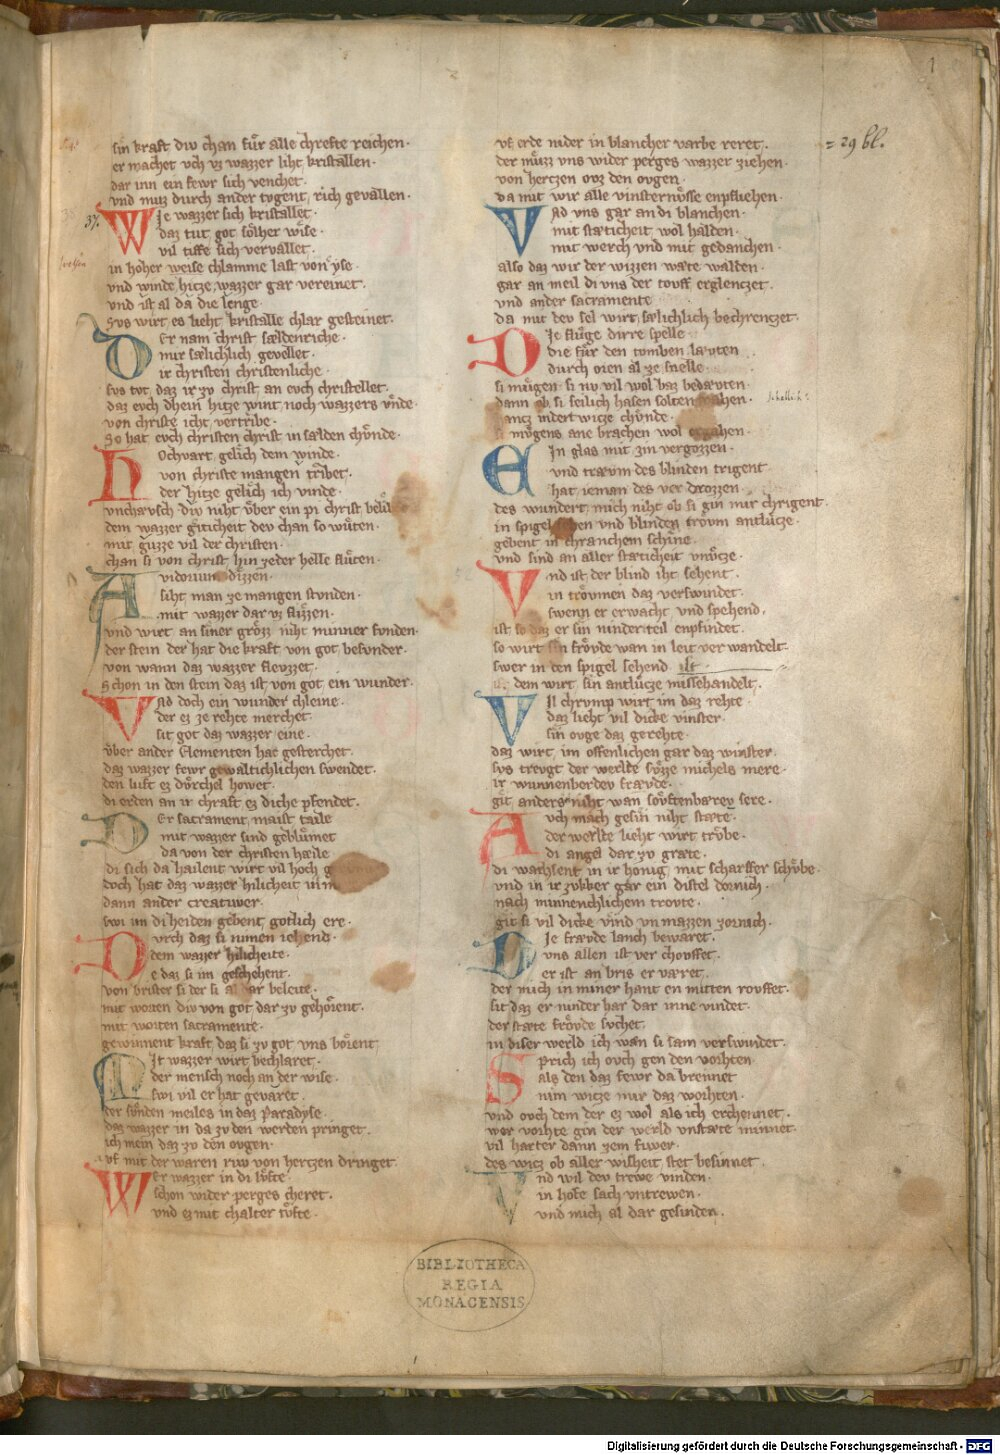 sin kraft div chan fúr alle chrefte reichen·
er machet vch vz wazzer liht kristallen·
dar inn ein fewr sich venchet·
vnd muz durch ander tvgent rich gevallen·
37.
WJe wazzer sich kristallet·
daz tut got solher wise·
vil tiffe sich vervallet·
in hoher weise chlamme last von yse·
vnd winde hitze wazzer gar vereinet·
vnd ist al da die lenge·
Svs wirt es lieht kristalle chlar gesteinet·
DEr nam christ sældenriche·
mir sælichlich gevellet·
ir christen christenliche·
svs tvt daz ir zv christ an evch christellet·
daz evch dhein hitze wint noch wazzers vnde·
von christe icht vertribe·
So hat evch christen christ in sælden chvnde·
HOchvart gelich dem winde·
von christe mangen tribet·
der hitze gelich ich vinde·
vnchævsch div niht vber ein pi christ
dem wazzer giticheit dev chan so wuten·
mit guzze vil der christen·
chan si von christ hin zeder helle fluten·
Avidorium dizzen·
siht man ze mangen stvnden·
mit wazzer dar vz flizzen·
vnd wirt an siner grozz niht minner fvnden·
der stein der hat die kraft von got besvnder·
von wann daz wazzer flevzzet·
Schon in den stein daz ist von got ein wunder·
VAd doch ein wunder chleine·
der ez ze rehte merchet·
sit got daz wazzer eine·
vber ander Elementen hat gesterchet·
daz wazzer fewr gewaltichlichen swendet·
den luft ez dvrchel howet·
di erden an ir chraft ez diche pfendet·
DEr sacrament maist taile
mit wazzer sind geblumet
da von der christen hæile·
di sich da hailent wirt vil hoch
doch hat daz wazzer hilicheit
dann ander creatiwer·
swi im di heiden gebent gotlich ere·
DVrch daz si nimen iehend·
dem wazzer hilicheite·
e daz si im geschehent·
von brister si der si dar beleite·
mit worten div von got dar zv gehorent·
mit worten sacramente·
gewinnent kraft daz si zv got vns borent
MIt wazzer wirt bechlaret·
der mensch noch an der wise·
swi vil er hat gevaret·
der svnden meiles in daz paradyse·
daz wazzer in da zv den werden pringet·
ich mein daz zv den ovgen·
vf mit der waren riw von hertzen dringet·
WEr wazzer in di lvfte·
schon wider perges cheret·
vnd ez mit chalter tvfte·
vf erde nider in blancher varbe reret·
der muzz vns wider perges wazzer ziehen·
von hertzen ovz den ovgen·
da mit wir alle vinsternvsse enpfliehen·
VAd vns gar an di blanchen·
mit stæticheit wol halden·
mit werch vnd mit gedanchen·
also daz wir der wizzen wæte walden·
gar an meil di vns der tovff erglenczet·
vnd ander sacramente
da mit dev sel wirt sælichlich bechrenczet·
DJe fluge dirre spelle·
die fur den tomben lævten
durch oren al ze snelle·
si mugen si nv vil wol baz bedævten·
dann ob si feilich hasen solten
Schellich?
gancz indert witze chvnde·
si mugens ane brachen wol
EIn glas mit zin vergozzen·
vnd trævm des blinden trigent
hat ieman des ver drozzen·
des wundert mich niht ob si gin mir chrigent·
in spigel sehen vnd blinden trovm antlutze·
gebent in chranchem schine·
vnd sind an aller stæticheit vnvtze·
Vnd ist der blind iht sehent·
in trovmen daz verswindet·
swenn er erwacht vnd spehend·
ist so daz er sin ninder teil enpfindet·
so wirt sin frovde wan in leit ver wandelt·
swer in den spigel sehend ist
dem wirt sin antlucze missehandelt·
VIl chrvmp wirt im daz rehte·
daz lieht vil dicke vinster·
sin ovge daz gerehte·
daz wirt im offenlichen gar daz winster·
svs trevgt der werlde svzze michels mere·
ir wunnenberdev frævde·
git anders niht wan sovftenbærey sere·
AVch mach gesin niht stæte·
der werlte lieht wirt trvbe·
di angel dar zv græte·
di wachsent in ir honig mit scharffer schvbe·
vnd in ir zvkker gar ein distel dornich·
nach minnenchlichem trovte·
git si vil dicke vind vn mazzen zornich·
DJe frævde lanch bewaret·
vns allen ist ver chovffet·
er ist an bris er været·
der mich in miner hant en mitten rovffet·
sit daz er ninder har dar inne vindet·
der stæte frovde svchet·
in diser werld ich wan si sam verswindet·
SPrich ich ovch gen den vorhten·
als den daz fewr da brennet
nim witze mir daz worhten·
vnd ovch dem der ez wol als ich erchennet·
wer vorhte gin der werld vnstæte minnet·
vil harter dann zem fiwer·
des witz ob aller wisheit stet besinnet·
Vnd wil dev trewe vinden·
in hofe sach vntrewen·
vnd mich al dar gesinden·
1
= 29 bl.
BIBLIOTHECA
REGIA
MONACENSIS
Digitalisierung gefördert durch die Deutsche Forschungsgemeinschaft - DFG